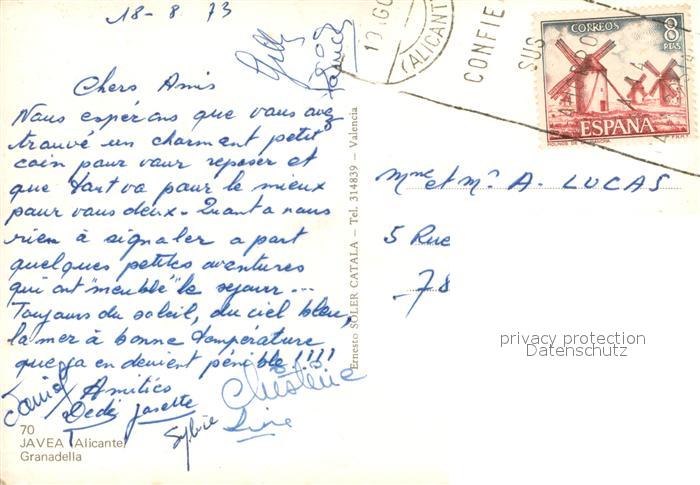 18-8-73
Gilly
Chers Amis
Nous espérons que vous avez
trouvé un charmant petit
coin pour vous reposer et
que tout va pour le mieux
pour vous deux. Quant a nous
rien à signaler a part
quelques petites aventures
qui ont "meublé" le séjour...
Toujours du soleil, du ciel bleu,
la mer à bonne température
que ça en devient pénible !!!!
Amitiés
Daniel
Dédé Josette
Sylvie
Christine
Line
70
JAVEA (Alicante)
Granadella
Ernesto SOLER CATALA — Tel. 314839 — Valencia
19 AGO
(ALICANTE)
CONFIE
SUS
CORREOS 8
PTAS
ESPAÑA
Mme et Mr. A. LUCAS
5 Rue
78
privacy protection
Datenschutz